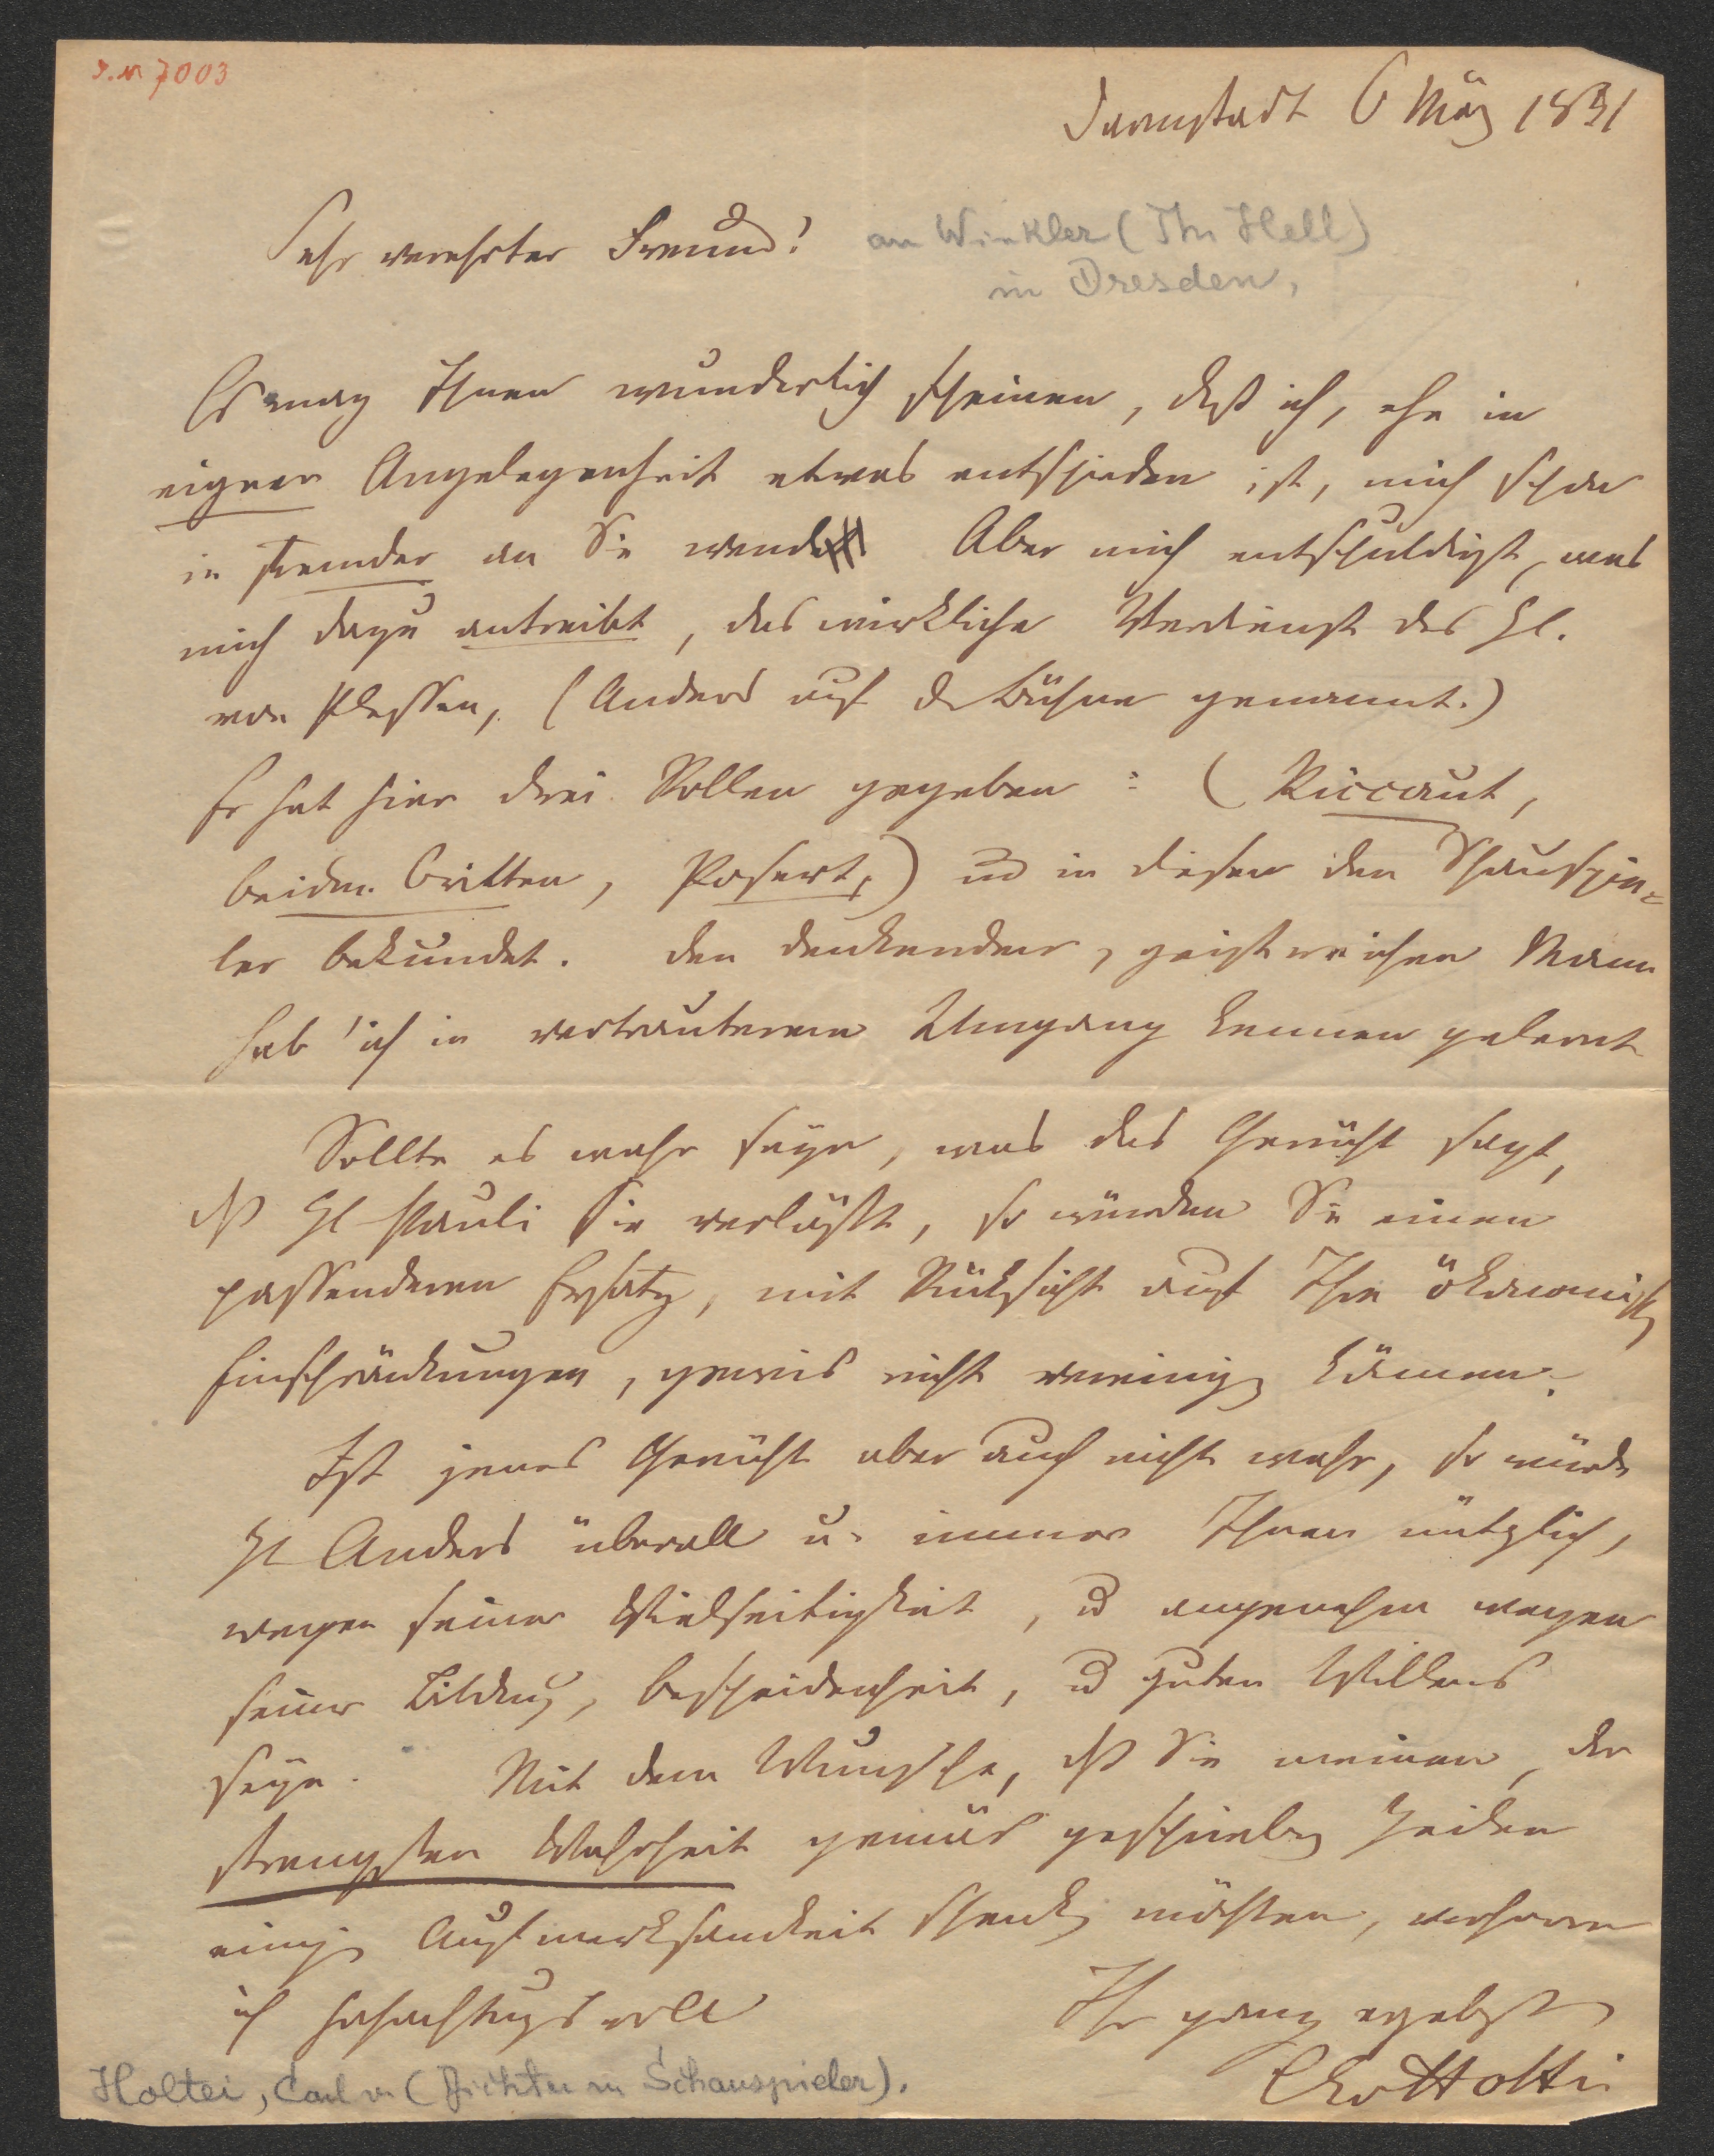 I.N 7003
Darmstadt 6 März 1831
Sehr verehrter Freund!
an Winkler (Th. Hell)
in Dresden,
Es mag Ihnen wunderlich scheinen, daß ich, ehe in
eigner Angelegenheit etwas entschieden ist, mich schon
in fremder an Sie wende. Aber mich entschuldigt, was
mich dazu antreibt, das wirkliche Verdienst des H.
von Plessen, (Anders auf d. Bühne genannt.)
Er hat hier drei Rollen gegeben: (Riccaut,
beiden Britten, Posert,) und in diesen den Schauspie-
ler bekundet. Den denkenden, geistreichen Mann
hab' ich in vertrauterem Umgang kennen gelernt
Sollte es wahr seyn, was das Gerücht sagt,
dß H Pauli Sie verläßt, so würden Sie einen
passenderen Ersatz, mit Rücksicht auf Ihre ökonomisch
Einschränkungen, gewis nicht können.
Ist jenes Gerücht aber auch nicht wahr, so würde
H Anders überall u. immer Ihnen nützlich,
wegen seiner Vielseitigkeit, und angenehm wegen
seiner Bildung, Bescheidenheit, und guten Willens
seyn. Mit dem Wunsche, dß Sie meinen, der
strengsten Wahrheit gemäs geschriebenen Zeilen
einige Aufmerksamkeit schenken möchten, verharre
ich hochachtungsvoll
Ihr ganz ergebenst
CEvHoltei
Holtei, Carl v. (Dichter u Schauspieler).